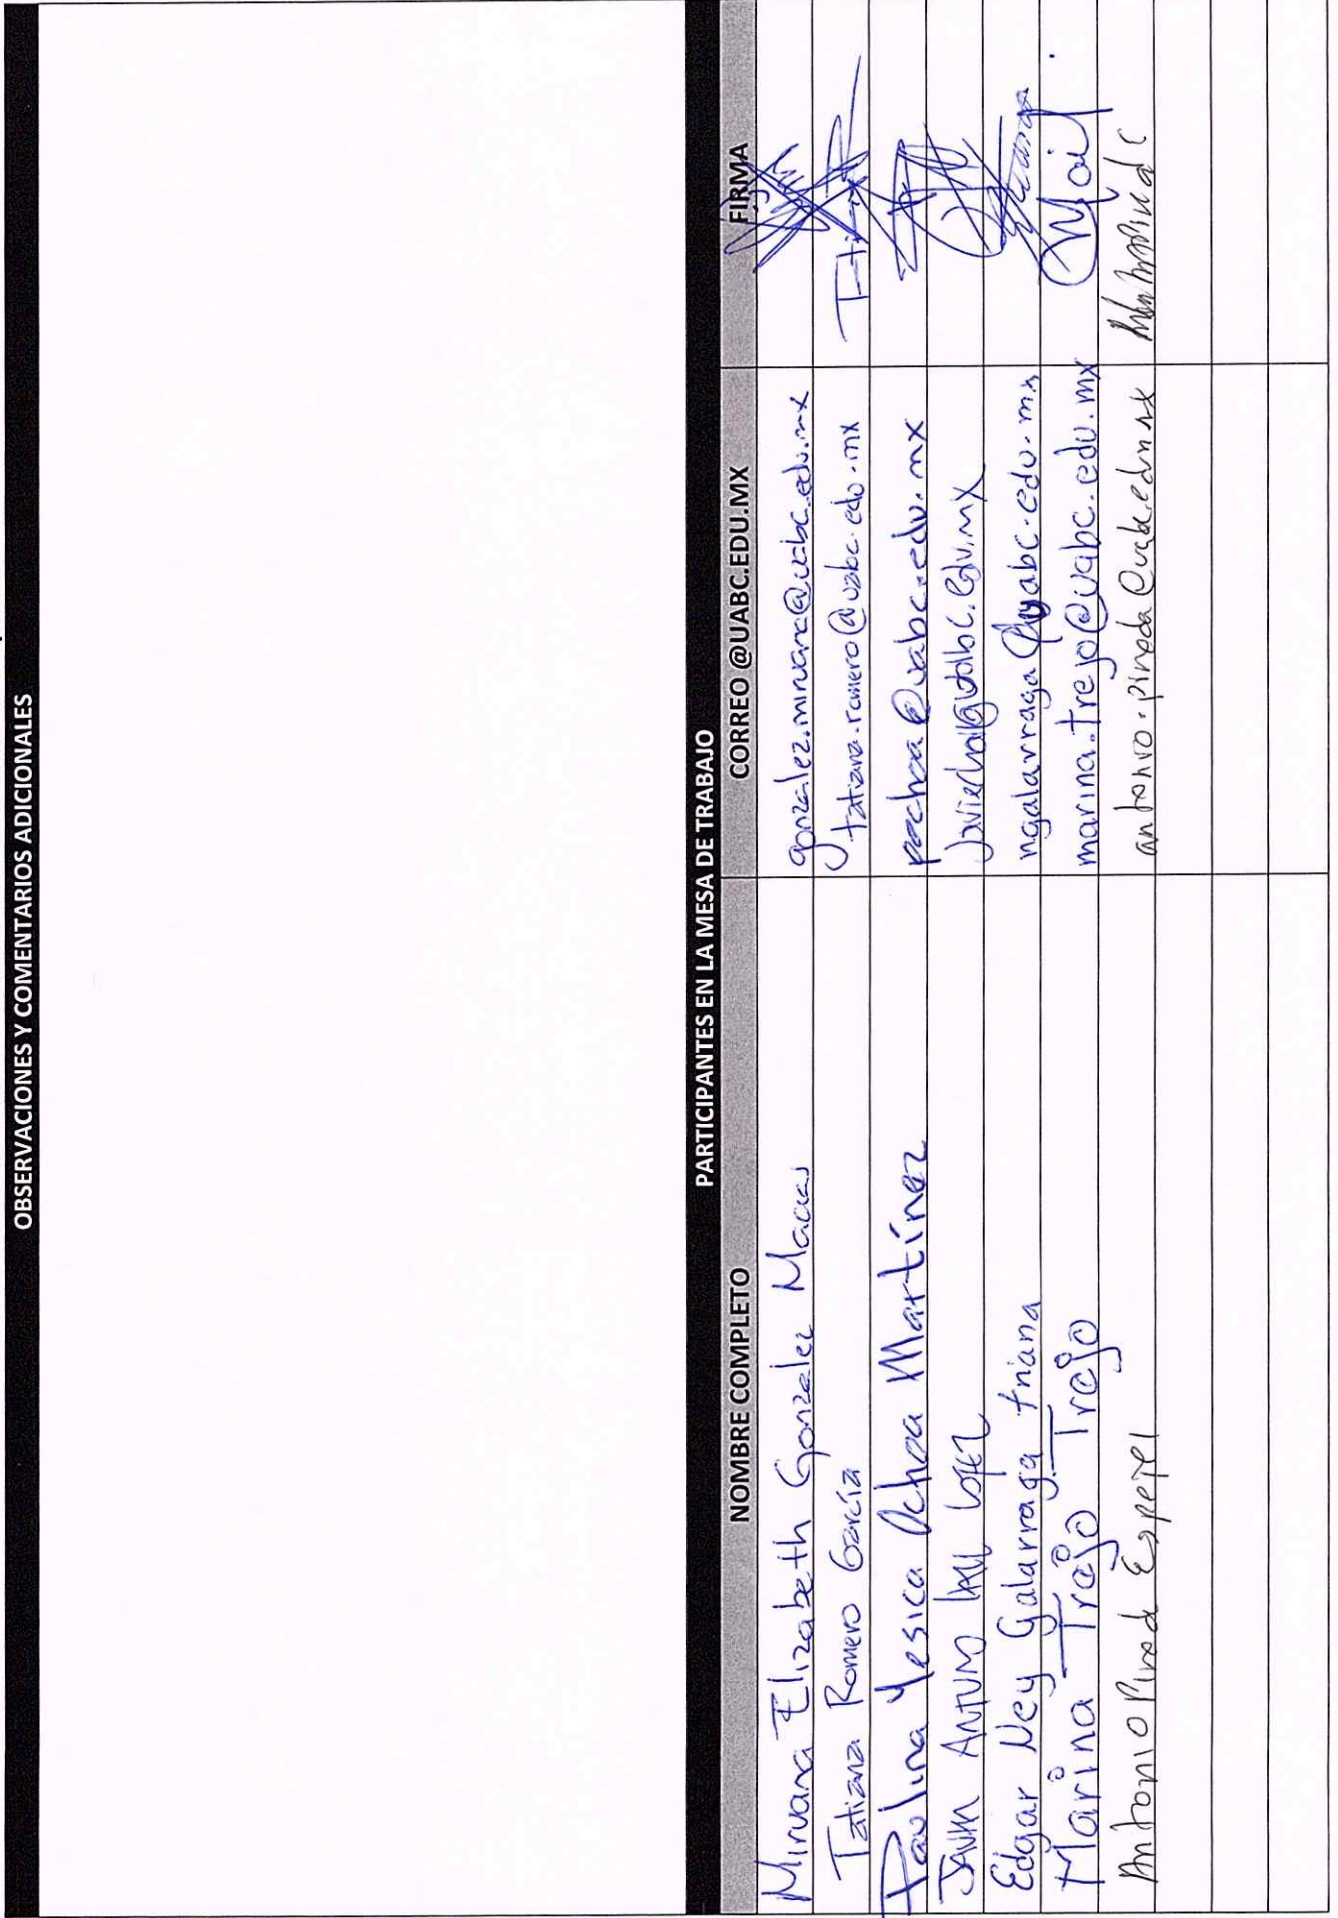 OBSERVACIONES Y COMENTARIOS ADICIONALES
PARTICIPANTES EN LA MESA DE TRABAJO
NOMBRE COMPLETO CORREO @UABC.EDU.MX FIRMA
Mirvana Elizabeth Gonzalez Macias gonzalez.mirvana@uabc.edu.mx
Tatiana Romero García tatiana.romero@uabc.edu.mx
Paulina Yesica Ochoa Martínez pochoa@uabc.edu.mx
Edgar Ney Galarraga triana ngalarraga@uabc.edu.mx
Marina Trejo Trejo marina.trejo@uabc.edu.mx
Antonio Pineda Espejel antonio.pineda@uabc.edu.mx